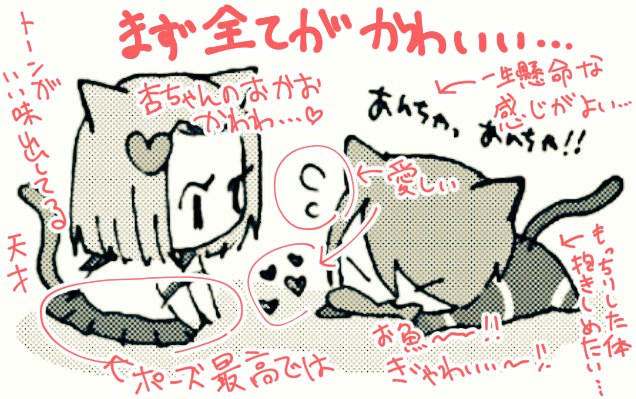 まず全てがかわいい…
トーンが
いい味出してる
天才
杏ちゃんのおかお
かわわ…♡
あんちゃっ
あんちゃ!!
←一生懸命な
感じがよい…
←愛しい
←もっちりした体
抱きしめたい…
お魚〜!!
ぎゃわいい〜!!
ポーズ最高では